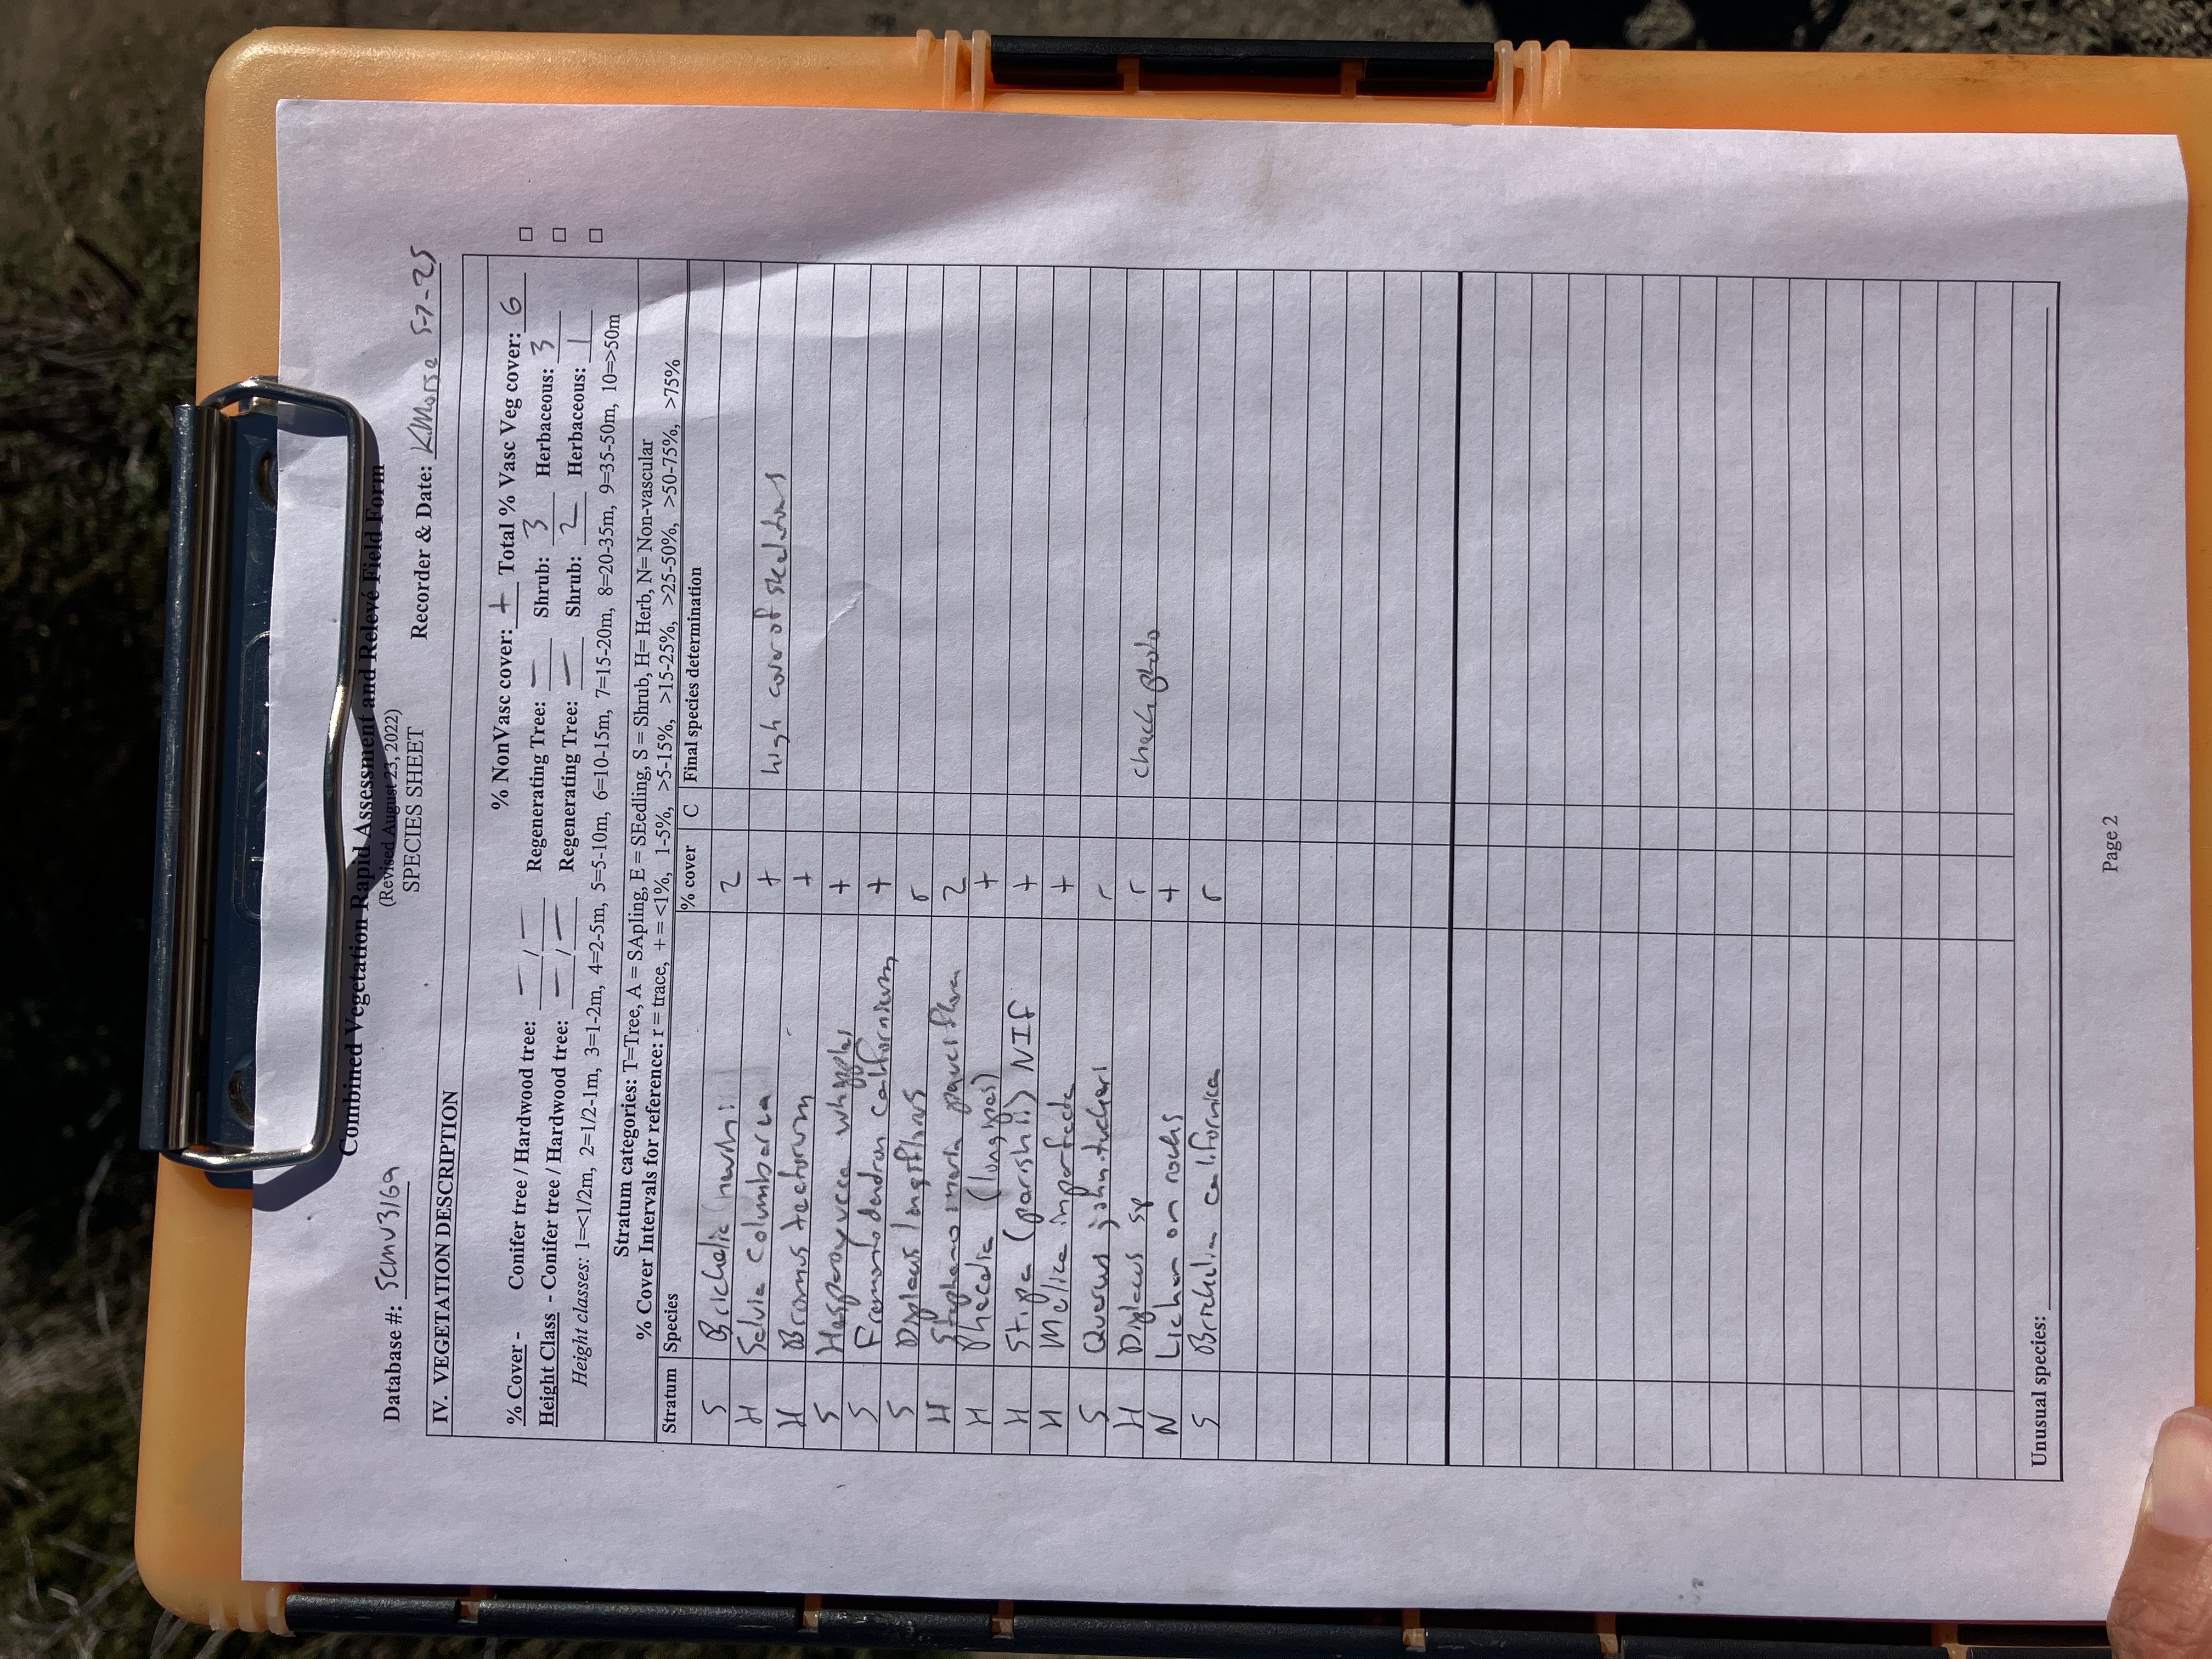 Combined Vegetation Rapid Assessment and Relevé Field Form
(Revised August 23, 2022)
SPECIES SHEET
Database #: Scmv3169 Recorder & Date: K.Morse 5-7-25
IV. VEGETATION DESCRIPTION
% NonVasc cover: + Total % Vasc Veg cover: 6 □
% Cover - Conifer tree / Hardwood tree: — / — Regenerating Tree: — Shrub: 3 Herbaceous: 3 □
Height Class - Conifer tree / Hardwood tree: — / — Regenerating Tree: — Shrub: 2 Herbaceous: 1 □
Height classes: 1=<1/2m, 2=1/2-1m, 3=1-2m, 4=2-5m, 5=5-10m, 6=10-15m, 7=15-20m, 8=20-35m, 9=35-50m, 10=>50m
Stratum categories: T=Tree, A = SApling, E = SEedling, S = Shrub, H= Herb, N= Non-vascular
% Cover Intervals for reference: r = trace, + = <1%, 1-5%, >5-15%, >15-25%, >25-50%, >50-75%, >75%
Stratum Species % cover C Final species determination
S Brickellia 2
H Salvia columbariae + high cover of skeletons
H Bromus tectorum +
S Hesperoyucca whipplei +
S Fremontodendron californicum +
S Diplacus longiflorus r
H Stephanomeria pauciflora 2
H Phacelia (longipes) +
H Stipa (parishii) NIF +
H Melica imperfecta +
S Quercus john-tuckeri r
H Diplacus sp r check photo
N Lichen on rocks +
S Brickellia californica r
Unusual species:
Page 2